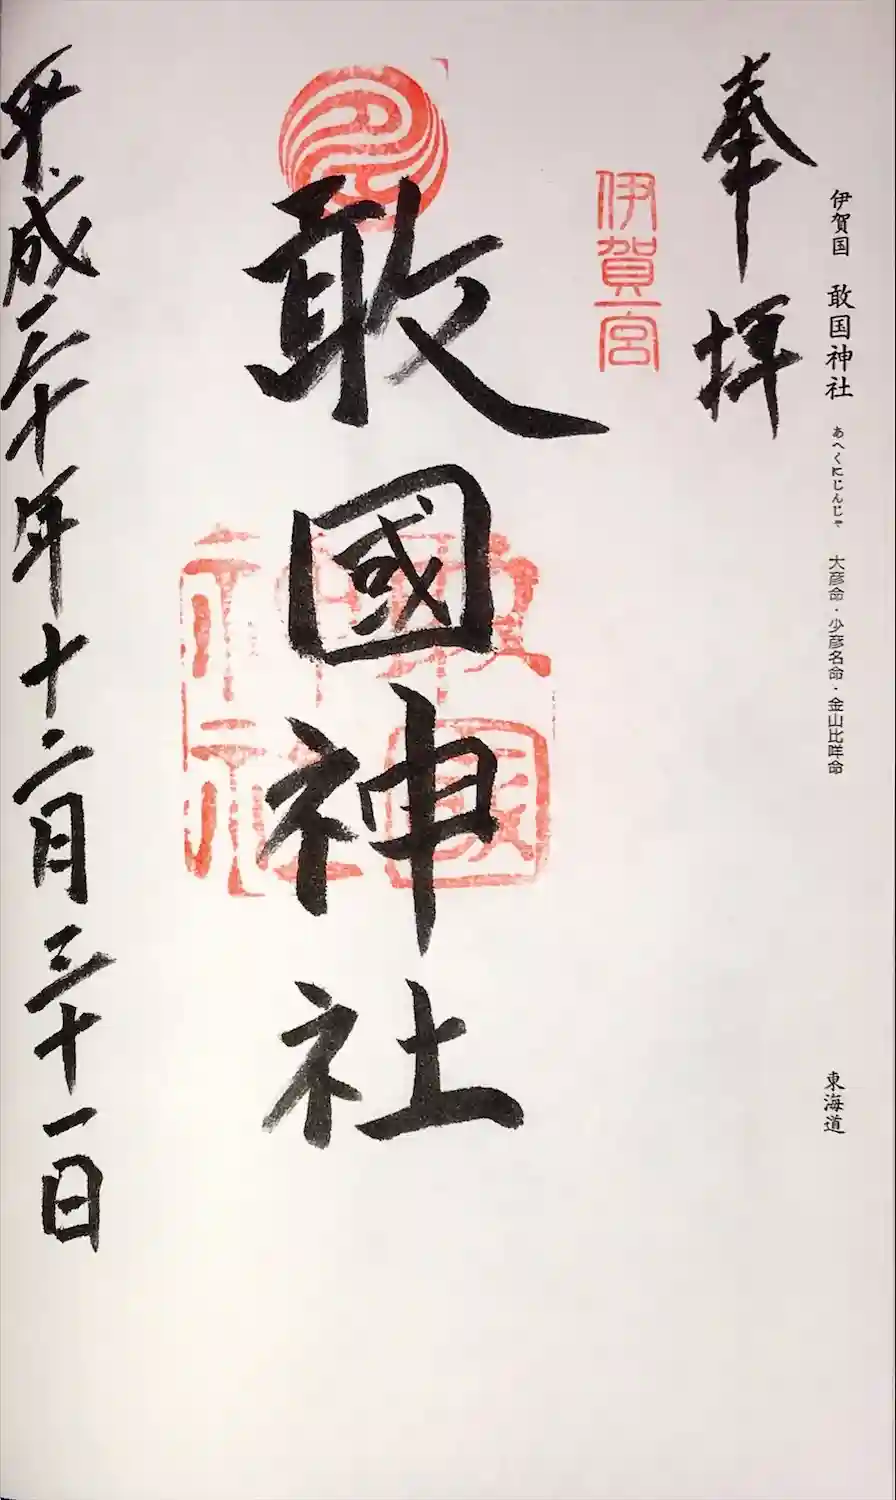 伊賀国 敢国神社 あへくにじんじゃ 大彦命・少彦名命・金山比咩命 東海道
奉拝
伊賀一宮
敢國神社
敢國神社
平成三十年十二月三十一日